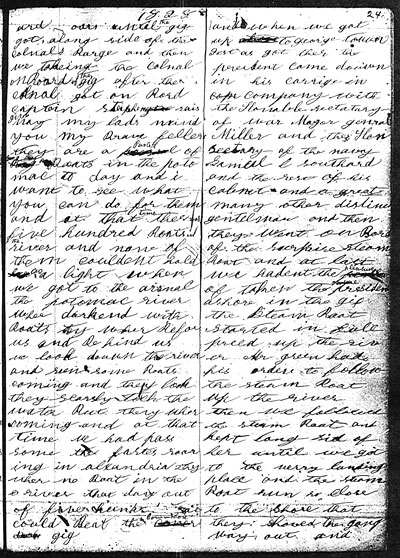 1828
24
ard our until the gig
got along side of the
Colnals Barge and then
we takeing the Colnal
on Board the gig after the
Colnal got on Bord
captain Stephenson sais
may my lads mind
you my Brave fellers
they are a of
Boats in the poto
mac to day and i
want to see what
you can do for them
and at that time the
five hundred Boats
the river and none of
them couldent hold
a light when
we got to the arsnal
the potomac river
wher darkend with
Boats By wher Befor
us and Be hind us
we look down the river
and seen some Boats
coming and they look
they scarsly toch the
water But they wher
coming and at that
time we had pass
some fasts roar
ing in alexandria they
wher no Boat in the
river that day out
of five hundred
could Beat the
gig
and when we got
up to george
Just as got ther the
president came down
in his carrige in
company with
the Honrable sectatary
of war Major genral
Miller and the Hon
sectary of the navy
Samuel L southard
and the rest of his
cabnet and a great
many other distin
gentelman and then
they went on Bord
of the surprise steam
Boat and at last
we hadent the pleasure
of taken the presiden
ashore in the gig
the steam Boat
started in full
speed up the riv
er Mr green had
his orders to follow
the steam Boat
up the river
then we followed
the steam Boat and
kept long sid of
her until we got
to the verry landing
place and the steam
Boat run so close
to the shore that
they shoved the gang
way out and